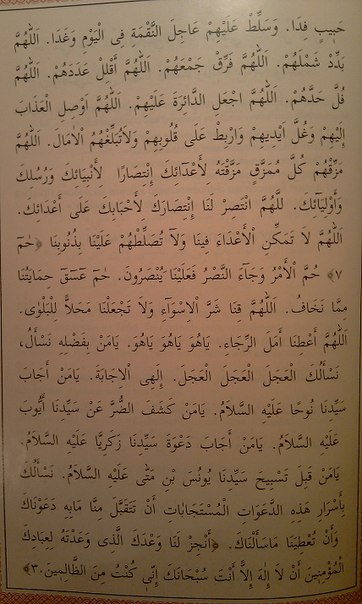 حَبِيبٍ فِدَا. وَسَلِّطْ عَلَيْهِمْ عَاجِلَ النَّقْمَةِ فِى الْيَوْمِ وَغَدَا. اَللّٰهُمَّ
بَدِّدْ شَمْلَهُمْ. اَللّٰهُمَّ فَرِّقْ جَمْعَهُمْ. اَللّٰهُمَّ اَقْلِلْ عَدَدَهُمْ. اَللّٰهُمَّ
فُلَّ حَدَّهُمْ. اَللّٰهُمَّ اجْعَلِ الدَّائِرَةَ عَلَيْهِمْ. اَللّٰهُمَّ اَوْصِلِ الْعَذَابَ
إِلَيْهِمْ وَغُلَّ اَيْدِيهِمْ وَارْبِطْ عَلَى قُلُوبِهِمْ وَلاَتُبَلِّغْهُمُ الْاٰمَالَ. اَللّٰهُمَّ
مَزِّقْهُمْ كُلَّ مُمَزَّقٍ مَزَّقْتَهُ لِأَعْدَائِكَ إِنْتِصَارًا لِأَنْبِيَائِكَ وَرُسُلِكَ
وَأَوْلِيَائِكَ. للّٰهُمَّ انْتَصِرْ لَنَا إِنْتِصَارَكَ لِأَحْبَابِكَ عَلَى أَعْدَائِكَ.
اَللّٰهُمَّ لاَ تُمَكِّنِ الْأَعْدَاءَ فِينَا وَلاَ تُسَلِّطْهُمْ عَلَيْنَا بِذُنُوبِنَا ﴿حٰمٓ
٧﴾ حُمَّ الْأَمْرُ وَجَاءَ النَّصْرُ فَعَلَيْنَا يُنْصَرُونَ. حٰمٓ عٓسٓقٓ حِمَايَتُنَا
مِمَّا نَخَافُ. اَللّٰهُمَّ قِنَا شَرَّ الْاِسْوَاءِ وَلاَ تَجْعَلْنَا مَحَلاًّ لِلْبَلْوٰى.
اَللّٰهُمَّ أَعْطِنَا أَمَلَ الرَّجَاءِ. يَاهُوَ يَاهُوَ يَاهُوَ. يَامَنْ بِفَضْلِهِ نَسْأَلُ،
نَسْأَلُكَ الْعَجَلَ الْعَجَلَ الْعَجَلَ. إِلٰهِى الْاِجَابَةَ. يَامَنْ أَجَابَ
سَيِّدَنَا نُوحًا عَلَيْهِ السَّلاَمُ. يَامَنْ كَشَفَ الضُّرَّ عَنْ سَيِّدِنَا أَيُّوبَ
عَلَيْهِ السَّلاَمُ. يَامَنْ أَجَابَ دَعْوَةَ سَيِّدِنَا زَكَرِيَّا عَلَيْهِ السَّلاَمُ.
يَامَنْ قَبِلَ تَسْبِيحَ سَيِّدِنَا يُونُسَ بْنِ مَتّٰى عَلَيْهِ السَّلاَمُ. نَسْأَلُكَ
بِأَسْرَارِ هٰذِهِ الدَّعَوَاتِ الْمُسْتَجَابَاتِ أَنْ تَتَقَبَّلَ مِنَّا مَابِهِ دَعَوْنَاكَ
وَأَنْ تُعْطِيَنَا مَاسَأَلْنَاكَ. ﴿أَنْجِزْ لَنَا وَعْدَكَ الَّذِى وَعَدْتَهُ لِعِبَادِكَ
الْمُؤْمِنِينَ أَنْ لاَ إِلٰهَ إِلاَّ أَنْتَ سُبْحَانَكَ إِنِّى كُنْتُ مِنَ الظَّالِمِينَ.٣﴾